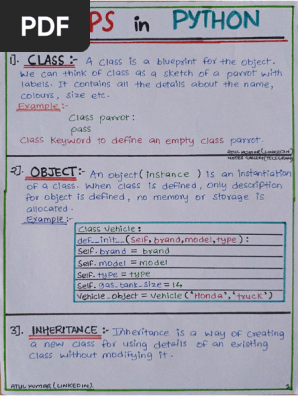 PDF
OOPS in PYTHON
1]. CLASS :- A class is a blueprint for the object.
We can think of class as a sketch of a parrot with
labels. It contains all the details about the name,
colours, size etc.
Example :-
Class parrot:
pass
Class Keyword to define an empty class parrot.
ATUL KUMAR (LINKEDIN)
NOTES GALLERY(TELEGRAM)
2]. OBJECT :- An object (instance) is an instantiation
of a class. When class is defined, only description
for object is defined, no memory or storage is
allocated.
Example :-
Class Vehicle:
def__init__(Self,brand,model,type):
Self.brand = brand
Self.model = model
Self.type = type
Self.gas.tank_size = 14
Vehicle_object = Vehicle('Honda','truck')
3]. INHERITANCE :- Inheritance is a way of creating
a new class for using details of an existing
Class without modifying it.
ATUL KUMAR (LINKEDIN).